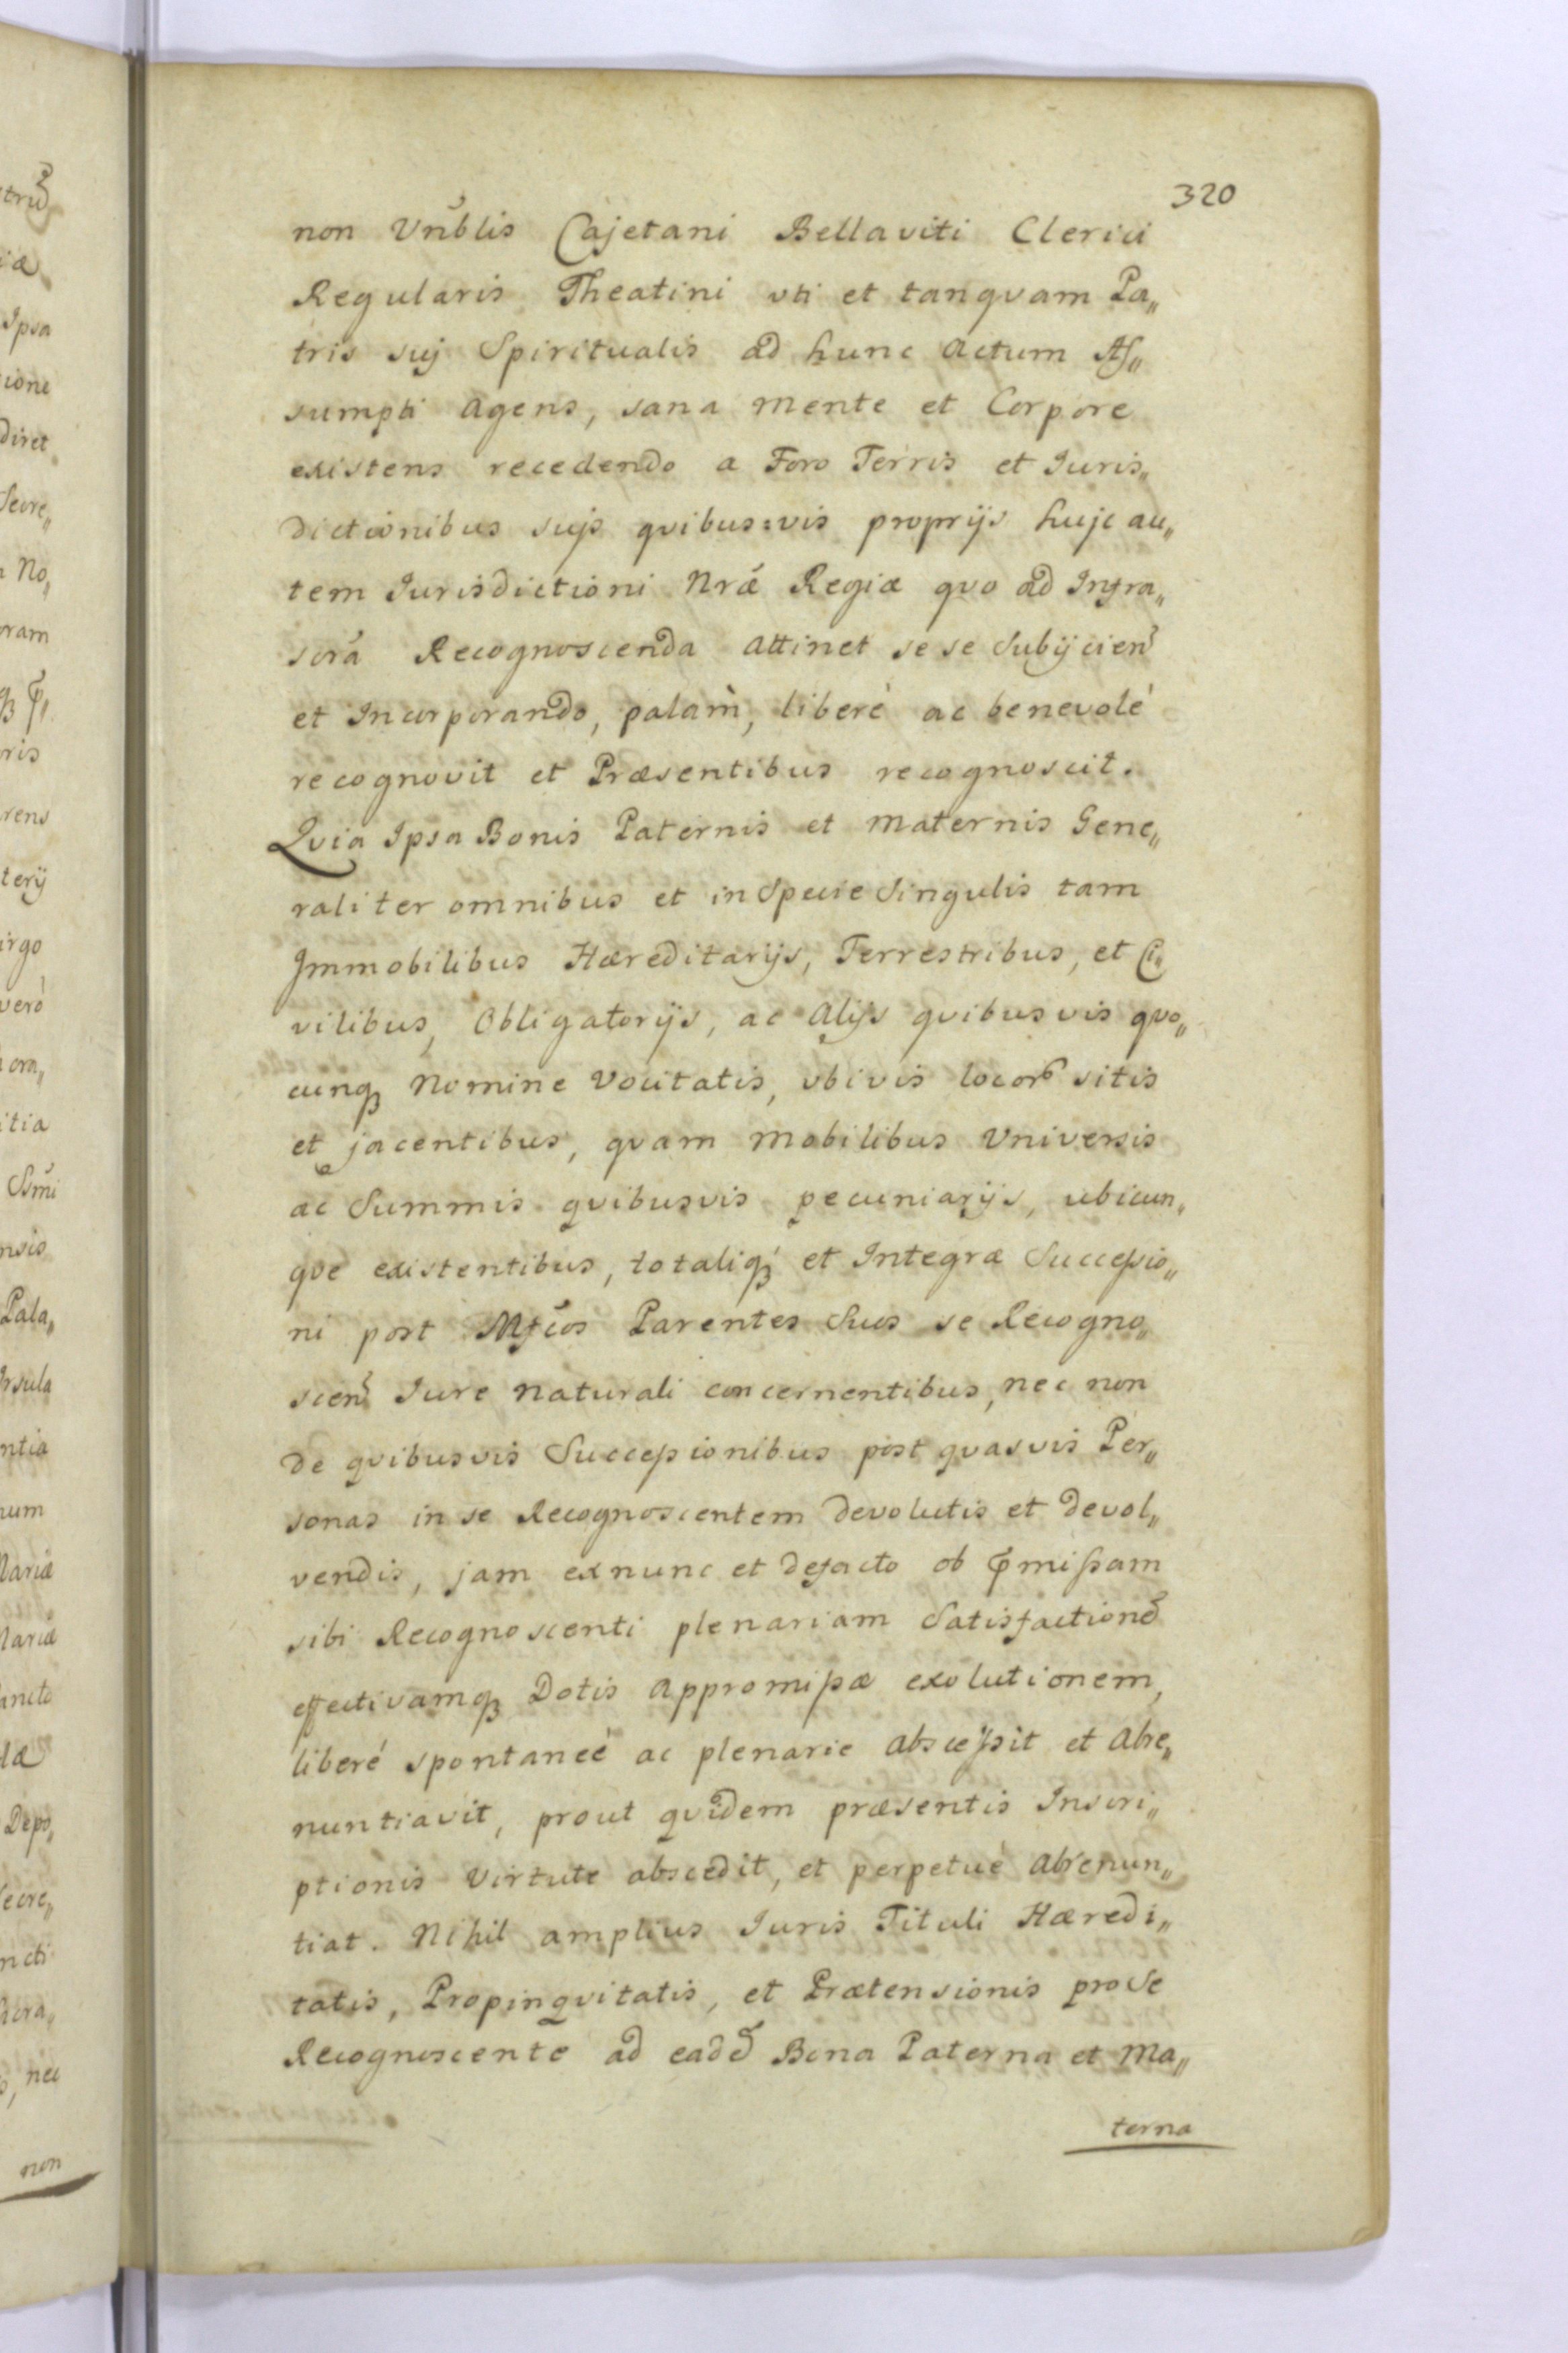 320
non Vnblis Cajetani Bellaviti Clerici
Regularis Theatini vti et tanqvam Pa„
tris suj Spiritualis ad hunc Actum As„
sumpti Agens, sana mente et Corpore
existens recedendo a Foro Terris et Juris„
dictionibus sujs qvibus:vis proprijs hujc au„
tem Jurisdictioni Nræ Regiæ qvo ad Infra„
scra Recognoscenda Attinet se se Subijcien
et Incorporando, palam, liberè ac benevolé
recognovit et Præsentibus recognoscit.
Qvia Ipsa Bonis Paternis et maternis Gene„
raliter omnibus et in Specie Singulis tam
Immobilibus Hæreditarijs, Terrestribus, et Ci„
vilibus, Obligatorijs, ac Alijs qvibusvis qvo„
cunq Nomine Vocitatis, vbivis locor sitis
et jacentibus, qvam Mobilibus Vniversis
ac Summis qvibusvis pecuniarijs, ubicun„
qve existentibus, totaliq et Integræ Successio„
ni post Mfcos Parentes Suos se Recogno„
scen Jure Naturali concernentibus, nec non
de qvibusvis Successionibus post qvasvis Per„
sonas in se Recognoscentem devolutis et devol„
vendis, jam exnunc et defacto ob p̄missam
sibi Recognoscenti plenariam Satisfactione
effectivamq Dotis Appromissæ exolutionem,
liberé spontaneè ac plenarie Abscessit et Abre„
nuntiavit, prout qvidem præsentis Inscri„
ptionis Virtute abscedit, et perpetuè Abrenun„
tiat. Nihil amplius Juris Tituli Hæredi„
tatis, Propinqvitatis, et Prætensionis pro Se
Recognoscente ad eade Bona Paterna et Ma„
terna